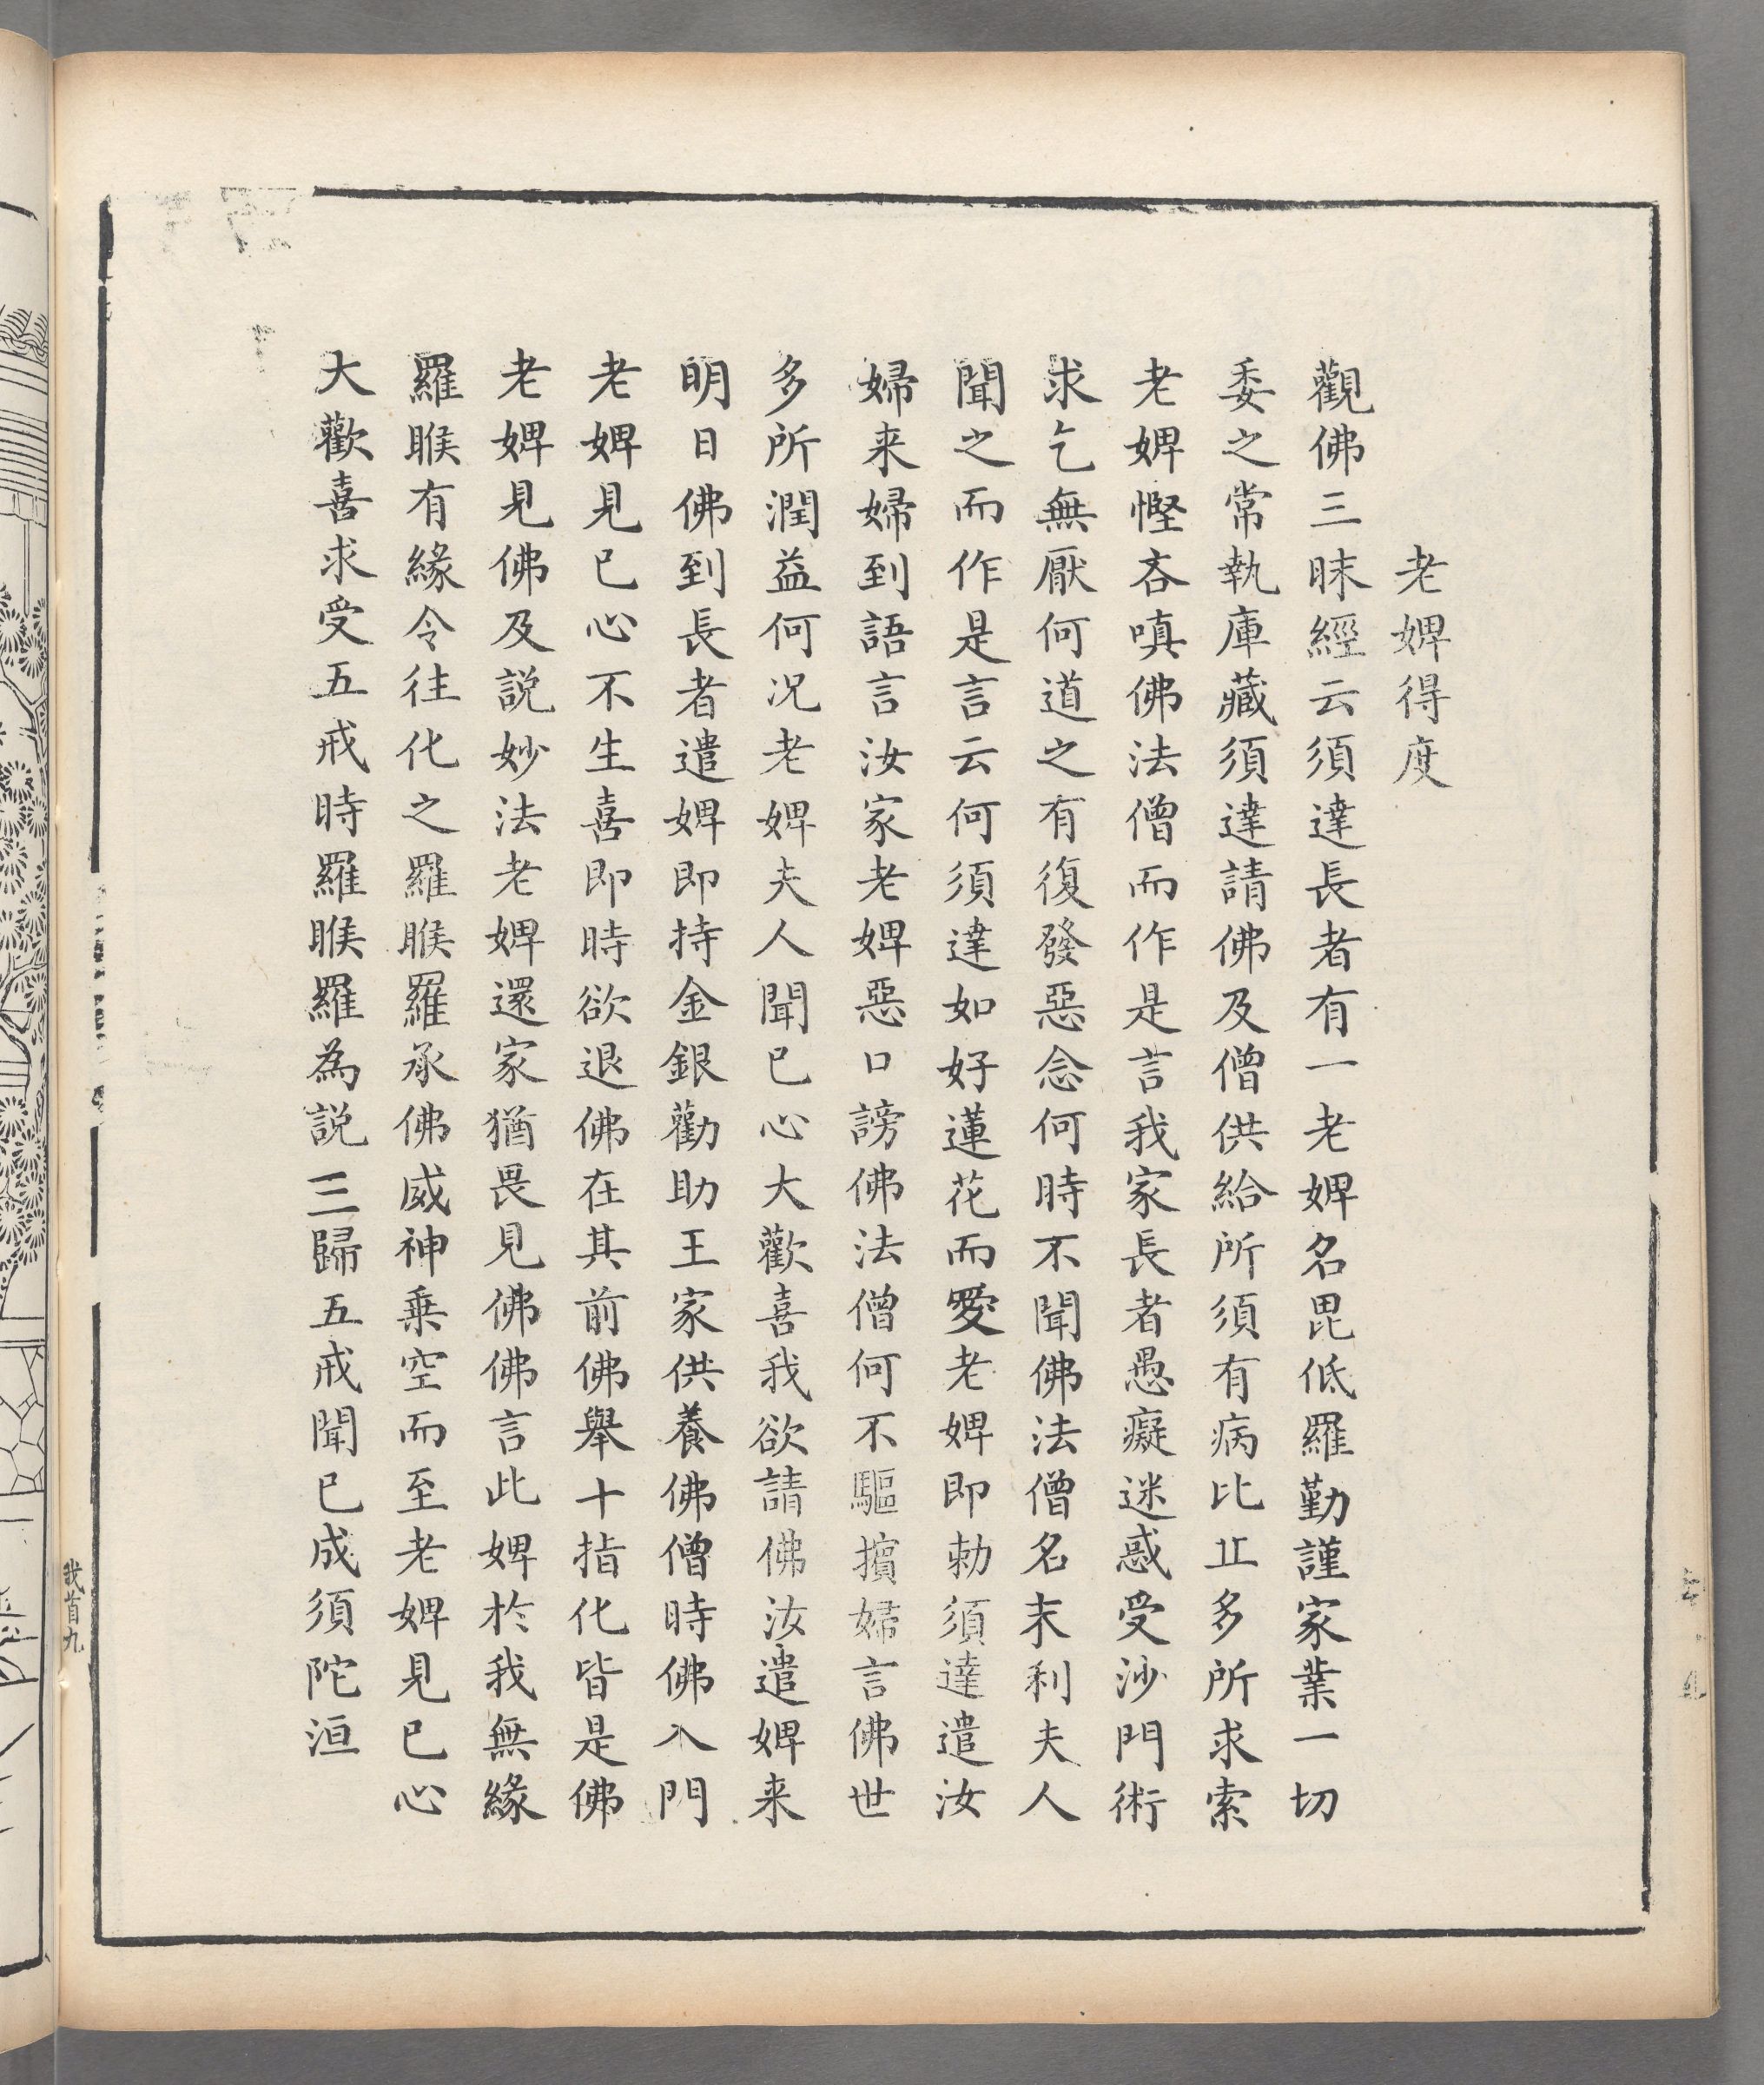 老婢得度
觀佛三昧經云須達長者有一老婢名毘低羅勤謹家業一切
委之常執庫藏須達請佛及僧供給所須有病比丘多所求索
老婢慳吝嗔佛法僧而作是言我家長者愚癡迷惑受沙門術
求乞無厭何道之有復發惡念何時不聞佛法僧名末利夫人
聞之而作是言云何須達如好蓮花而愛老婢即勅須達遣汝
婦来婦到語言汝家老婢惡口謗佛法僧何不驅擯婦言佛世
多所潤益何况老婢夫人聞已心大歡喜我欲請佛汝遣婢来
明日佛到長者遣婢即持金銀勸助王家供養佛僧時佛入門
老婢見已心不生喜即時欲退佛在其前佛舉十指化皆是佛
老婢見佛及説妙法老婢還家猶畏見佛佛言此婢於我無緣
羅睺有緣令往化之羅睺羅承佛威神乗空而至老婢見已心
大歡喜求受五戒時羅睺羅為説三歸五戒聞已成須陀洹
我首九